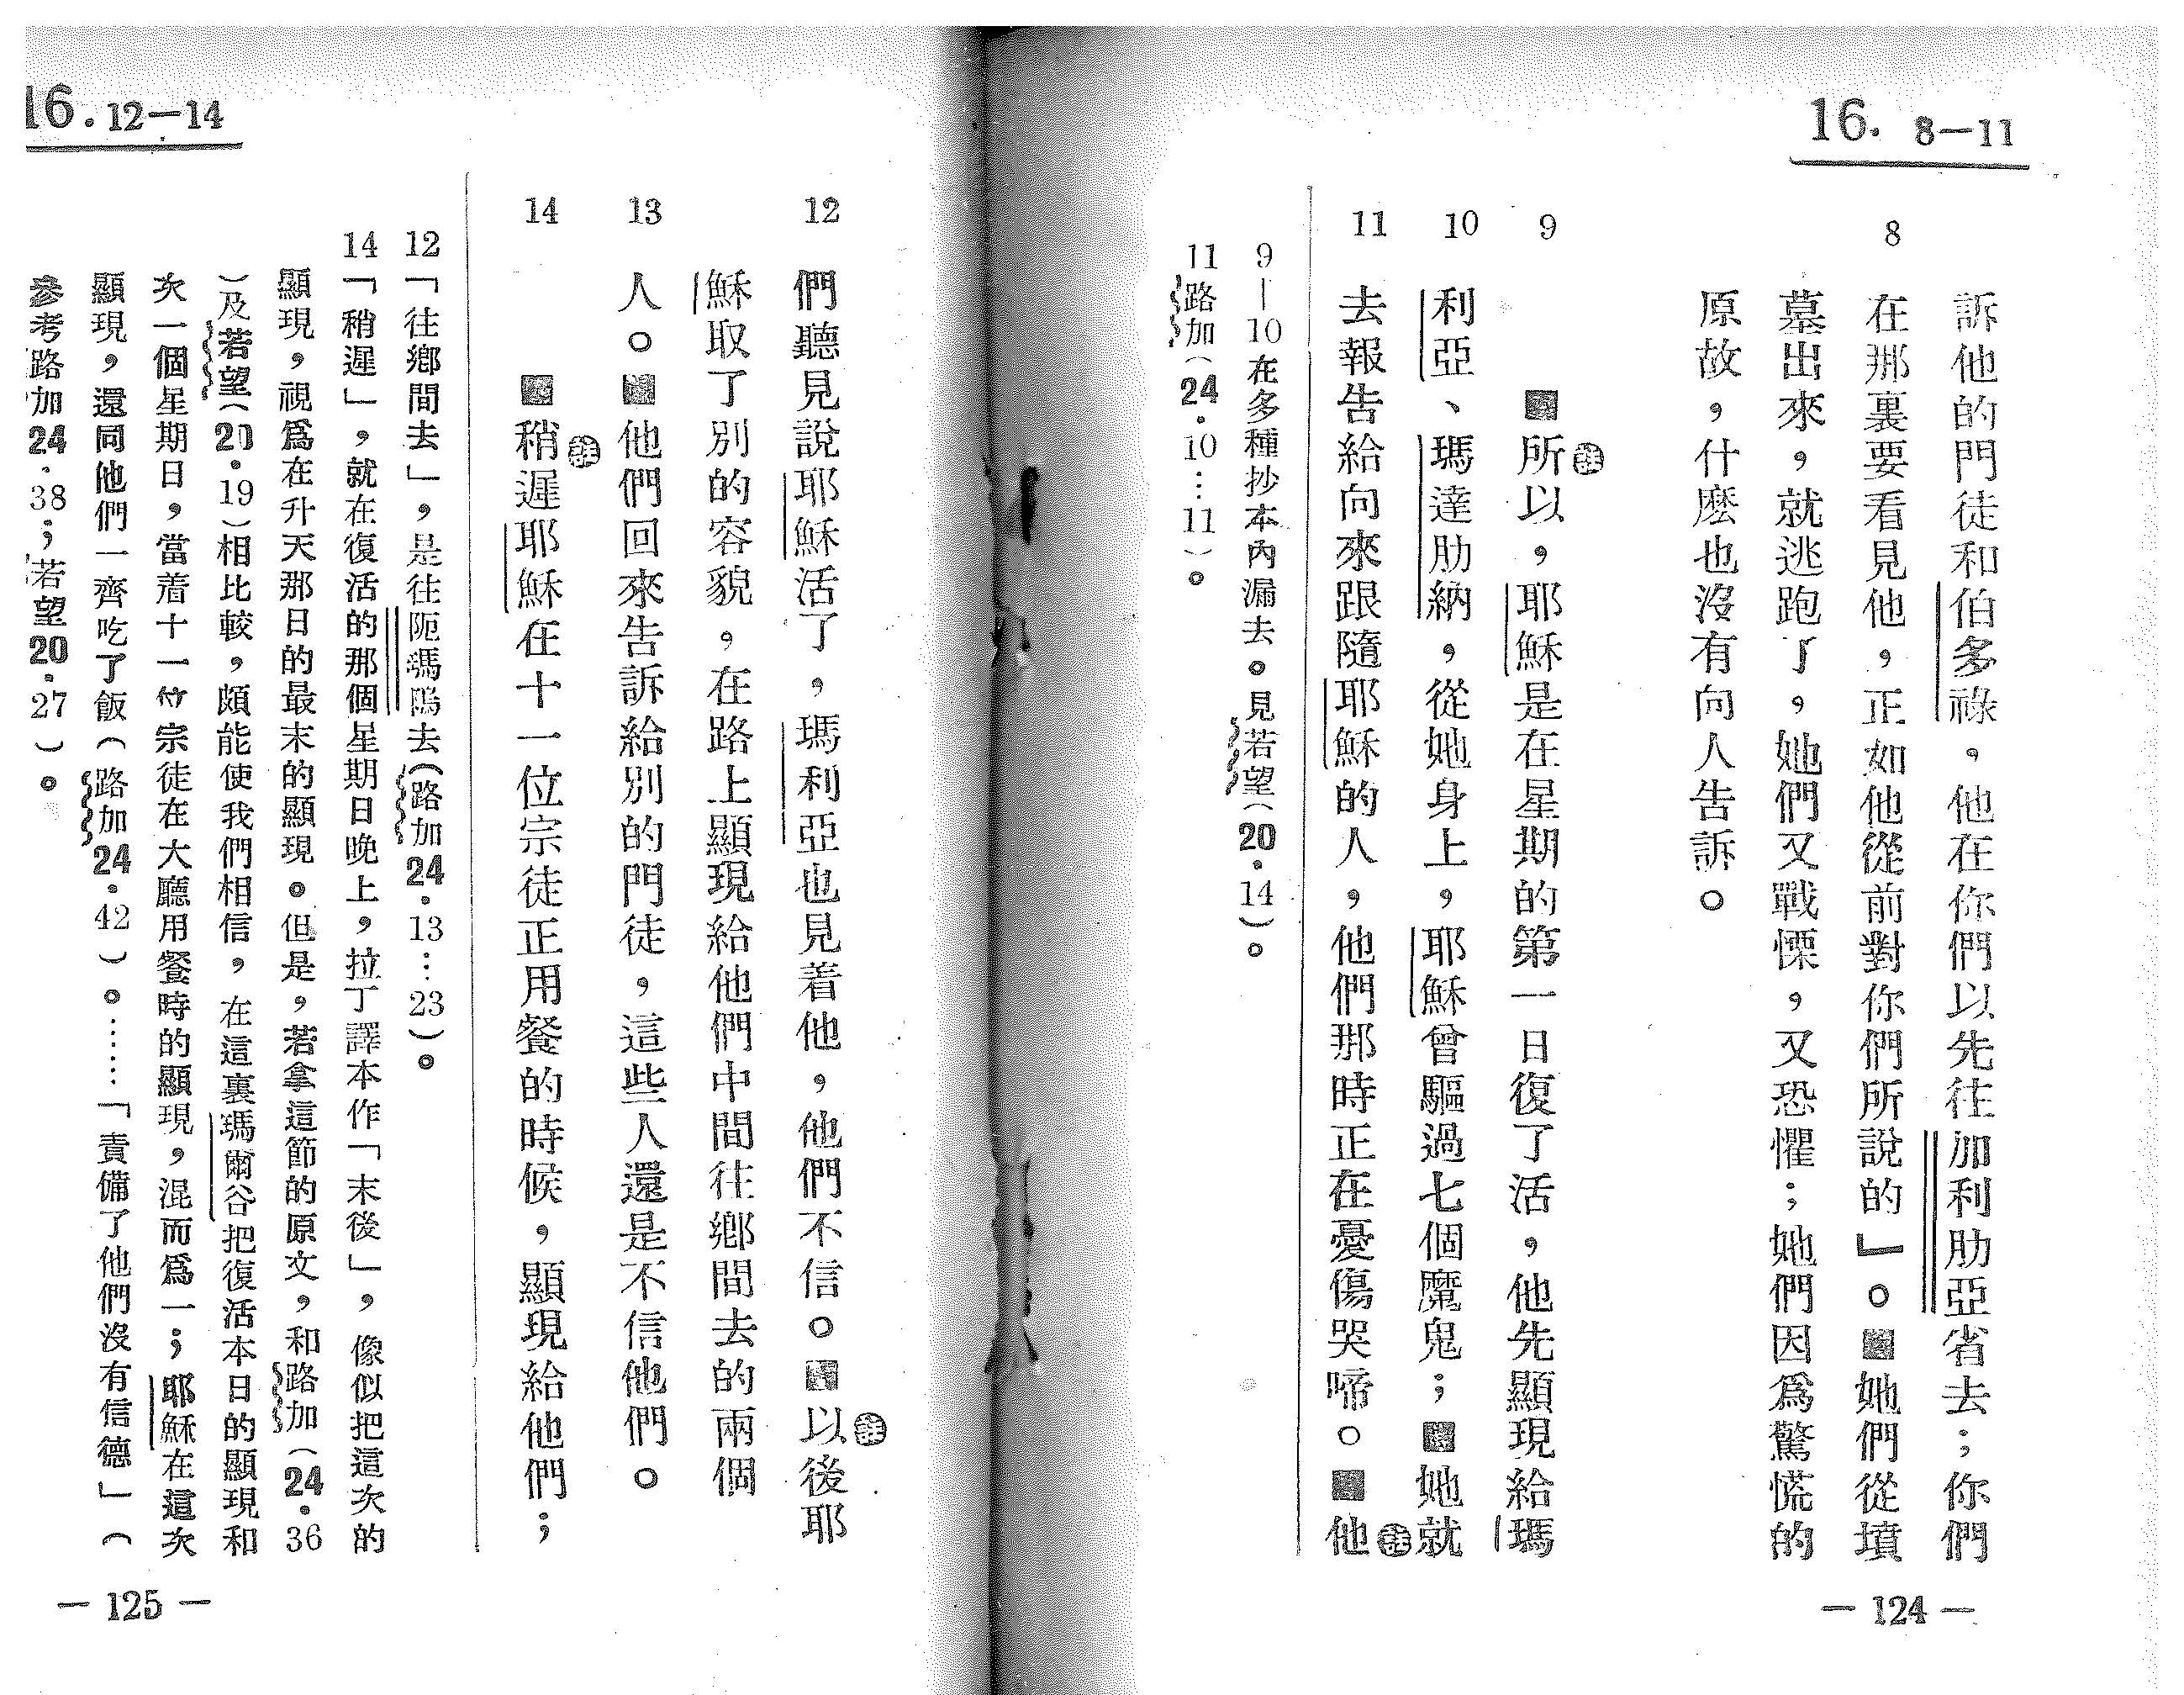 16. 8—11
8
訴他的門徒和伯多祿，他在你們以先往加利肋亞省去；你們
在那裏要看見他，正如他從前對你們所說的」。她們從墳
墓出來，就逃跑了，她們又戰慄，又恐懼；她們因爲驚慌的
原故，什麽也沒有向人告訴。
9
所以，耶穌是在星期的第一日復了活，他先顯現給瑪
註
10
利亞、瑪達肋納，從她身上，耶穌曾驅過七個魔鬼；她就
11
去報告給向來跟隨耶穌的人，他們那時正在憂傷哭啼。他
註
9—10在多種抄本內漏去。見若望（20·14）。
11路加（24·10…11）。
— 124 —
16. 12—14
12
們聽見說耶穌活了，瑪利亞也見着他，他們不信。以後耶
註
穌取了別的容貌，在路上顯現給他們中間往鄉間去的兩個
13
人。他們回來告訴給別的門徒，這些人還是不信他們。
14
稍遲耶穌在十一位宗徒正用餐的時候，顯現給他們；
註
12「往鄉間去」，是往阨瑪鄔去（路加24·13…23）。
14「稍遲」，就在復活的那個星期日晚上，拉丁譯本作「末後」，像似把這次的
顯現，視爲在升天那日的最末的顯現。但是，若拿這節的原文，和路加（24·36
）及若望（20·19）相比較，頗能使我們相信，在這裏瑪爾谷把復活本日的顯現和
次一個星期日，當着十一位宗徒在大廳用餐時的顯現，混而爲一；耶穌在這次
顯現，還同他們一齊吃了飯（路加24·42）。……「責備了他們沒有信德」（
參考路加24·38；若望20·27）。
— 125 —